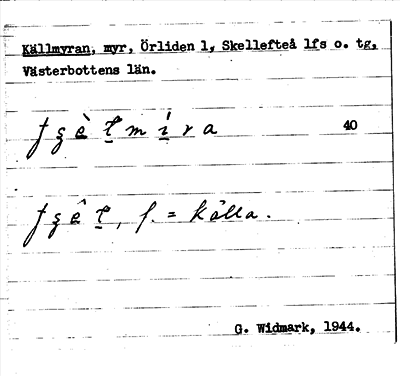 Källmyran, myr, Örliden 1, Skellefteå lfs o. tg,
Västerbottens län.
40
f. = källa.
G. Widmark, 1944.